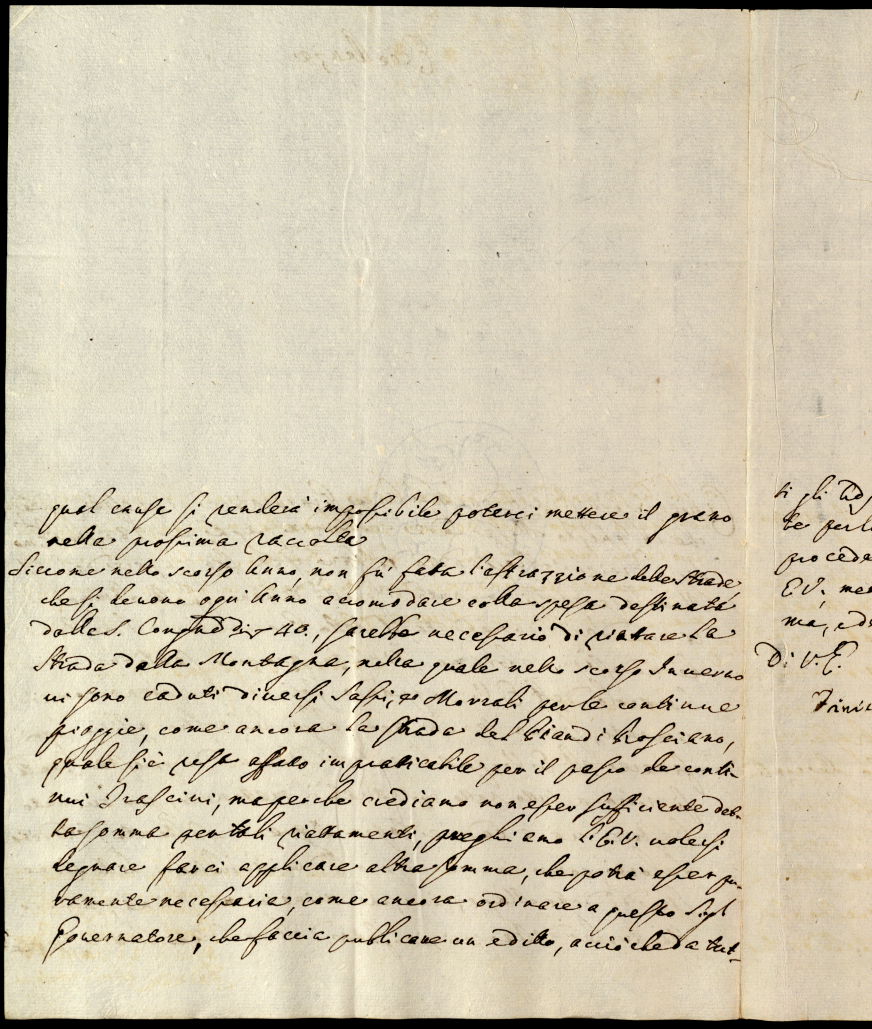 qual causa si renderà impossibile poterci mettere il grano
nella prossima raccolta
Siccome nello scorso Anno, non fù fatta l'astrazzione delle Strade,
che si devono ogn'Anno accomodare colla spesa destinata
dalla S. Congne di 40., sarebbe necessario di riattare la
Strada della Montagna, nella quale nello scorso Inverno
vi sono caduti diversi Sassi, e Morrali per le continue
pioggie, come ancora la strada del Pian di Rosciano,
quale si è resa affatto impraticabile per il passo de conti-
nui Trascini, ma perche crediamo non esser sufficiente det-
ta somma per tali riattamenti, preghiamo l'E.V. volersi
degnare farci applicare altra somma, che potrà esser pu-
ramente necessaria, come ancora ordinare a questo Sigr
Governatore, che faccia publicare un editto, acciò che da tut-
ti gli
te per l
procede
E.V. me
ma, ed
Di V.E.